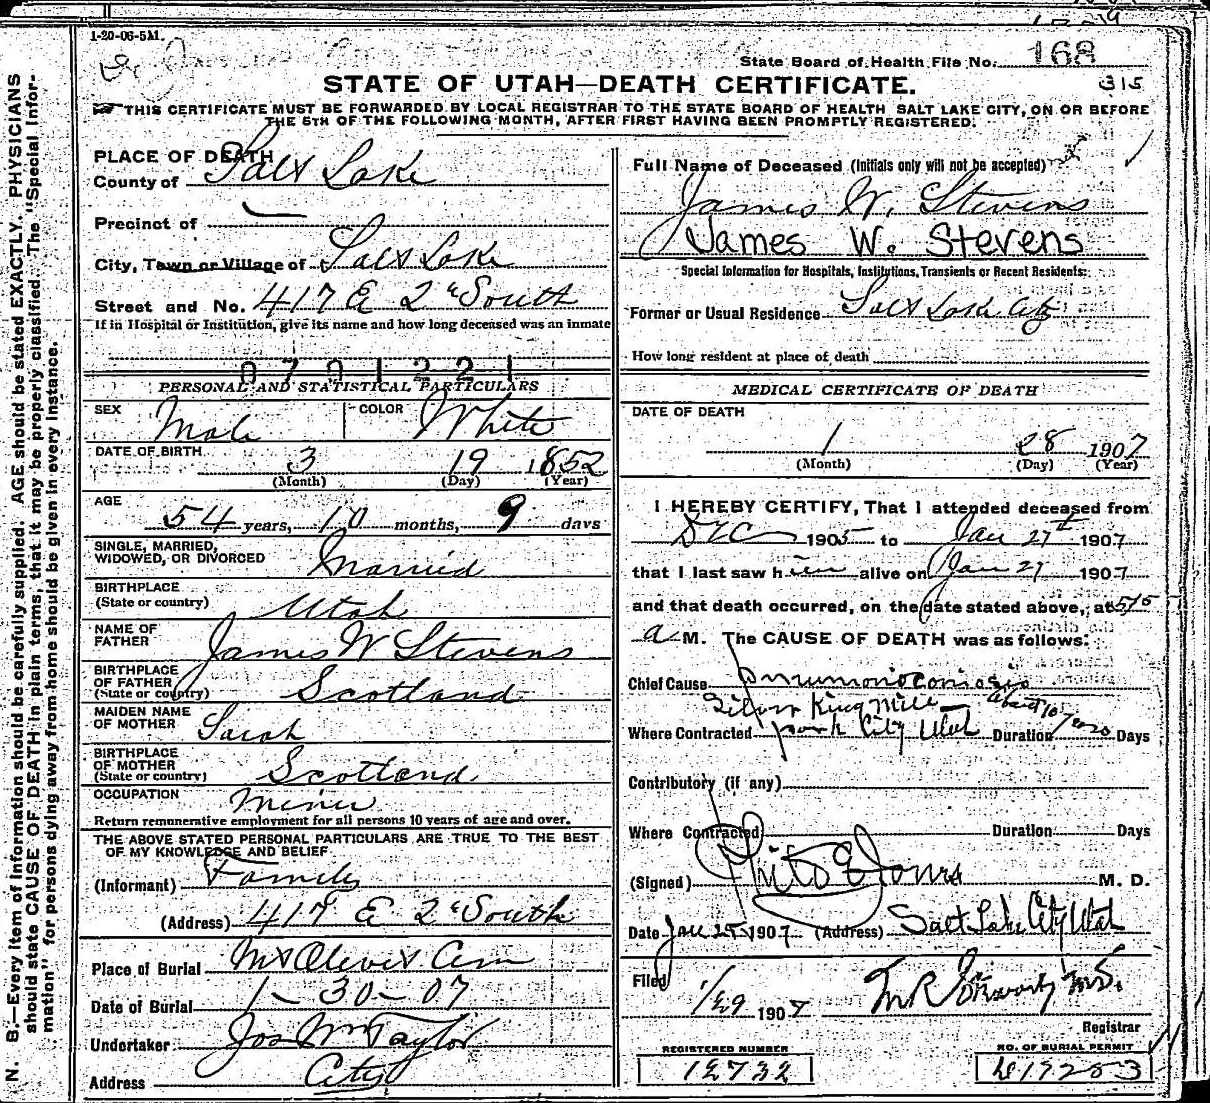 1-20-06-5M.
State Board of Health File No. 168
315
STATE OF UTAH—DEATH CERTIFICATE.
THIS CERTIFICATE MUST BE FORWARDED BY LOCAL REGISTRAR TO THE STATE BOARD OF HEALTH SALT LAKE CITY, ON OR BEFORE
THE 5TH OF THE FOLLOWING MONTH, AFTER FIRST HAVING BEEN PROMPTLY REGISTERED.
N. B.—Every item of information should be carefully supplied. AGE should be stated EXACTLY. PHYSICIANS
should state CAUSE OF DEATH in plain terms, that it may be properly classified. The "Special Infor-
mation" for persons dying away from home should be given in every instance.
PLACE OF DEATH
County of Salt Lake
Precinct of
City, Town or Village of Salt Lake
Street and No. 417 E 2d South
If in Hospital or Institution, give its name and how long deceased was an inmate
0701221
PERSONAL AND STATISTICAL PARTICULARS
SEX Male COLOR White
DATE OF BIRTH 3 19 1852
(Month) (Day) (Year)
AGE
54 years, 10 months, 9 days
SINGLE, MARRIED,
WIDOWED, OR DIVORCED Married
BIRTHPLACE
(State or country) Utah
NAME OF
FATHER James W Stevens
BIRTHPLACE
OF FATHER
(State or country) Scotland
MAIDEN NAME
OF MOTHER Sarah
BIRTHPLACE
OF MOTHER
(State or country) Scotland
OCCUPATION Miner
Return remunerative employment for all persons 10 years of age and over.
THE ABOVE STATED PERSONAL PARTICULARS ARE TRUE TO THE BEST
OF MY KNOWLEDGE AND BELIEF
(Informant) Family
(Address) 417 E 2d South
Place of Burial Mt Olivet Cem
Date of Burial 1-30-07
Undertaker Jos Wm Taylor
Address City
Full Name of Deceased (Initials only will not be accepted)
James W. Stevens
James W. Stevens
Special Information for Hospitals, Institutions, Transients or Recent Residents:
Former or Usual Residence Salt Lake City
How long resident at place of death
MEDICAL CERTIFICATE OF DEATH
DATE OF DEATH
1 28 1907
(Month) (Day) (Year)
I HEREBY CERTIFY, That I attended deceased from
Dec 1905 to Jan 27th 1907
that I last saw him alive on Jan 27 1907
and that death occurred, on the date stated above, at 515
a M. The CAUSE OF DEATH was as follows:
Chief Cause Pneumonoconiosis
Silver King Mill about 10 years
Where Contracted Park City Utah Duration Days
Contributory (if any)
Where Contracted Duration Days
(Signed) Jones M. D.
Date Jan 1907 (Address) Salt Lake City Utah
Filed 1/29 1907
Registrar
REGISTERED NUMBER NO. OF BURIAL PERMIT
12732